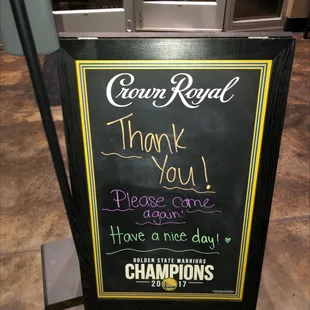 Crown Royal
Thank
You!
Please come
again!
Have a nice day!
GOLDEN STATE WARRIORS
CHAMPIONS
2017